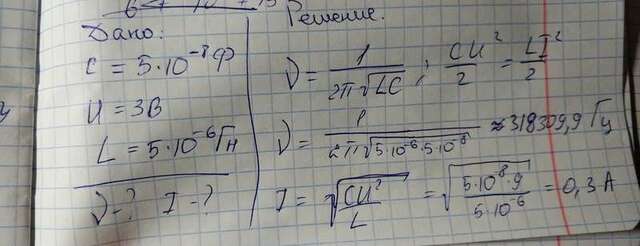 Дано:
C = 5·10⁻⁸ Ф
U = 3 В
L = 5·10⁻⁶ Гн
ν-? I-?
Решение.
ν = 1/(2π√LC) ; CU²/2 = LI²/2
ν = 1/(2π√(5·10⁻⁶·5·10⁻⁸)) ≈ 318309,9 Гц
I = √(CU²/L) = √(5·10⁻⁸·9/(5·10⁻⁶)) = 0,3 A